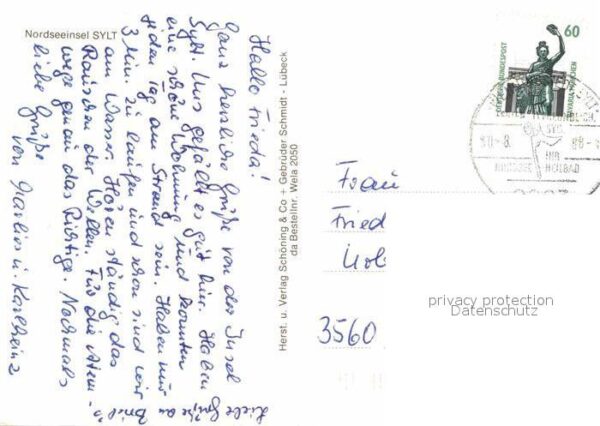 Nordseeinsel SYLT
Hallo Frieda!
Ganz herzliche Grüße von der Insel
Sylt. Uns gefällt es gut hier. Haben
eine schöne Wohnung und konnten
jeden Tag am Strand sein. Haben nur
3 Min. zu laufen und schon sind wir
am Wasser. Hören ständig das
Rauschen der Wellen. Für die Atem-
wege genau das Richtige. Nochmals
liebe Grüße
von u. Karlheinz
Liebe Grüße an
Herst. u. Verlag Schöning & Co + Gebrüder Schmidt - Lübeck
da Bestellnr. Wela 2050
60
DEUTSCHE BUNDESPOST
BAVARIA MÜNCHEN
Frau
Fried
3560
privacy protection
Datenschutz